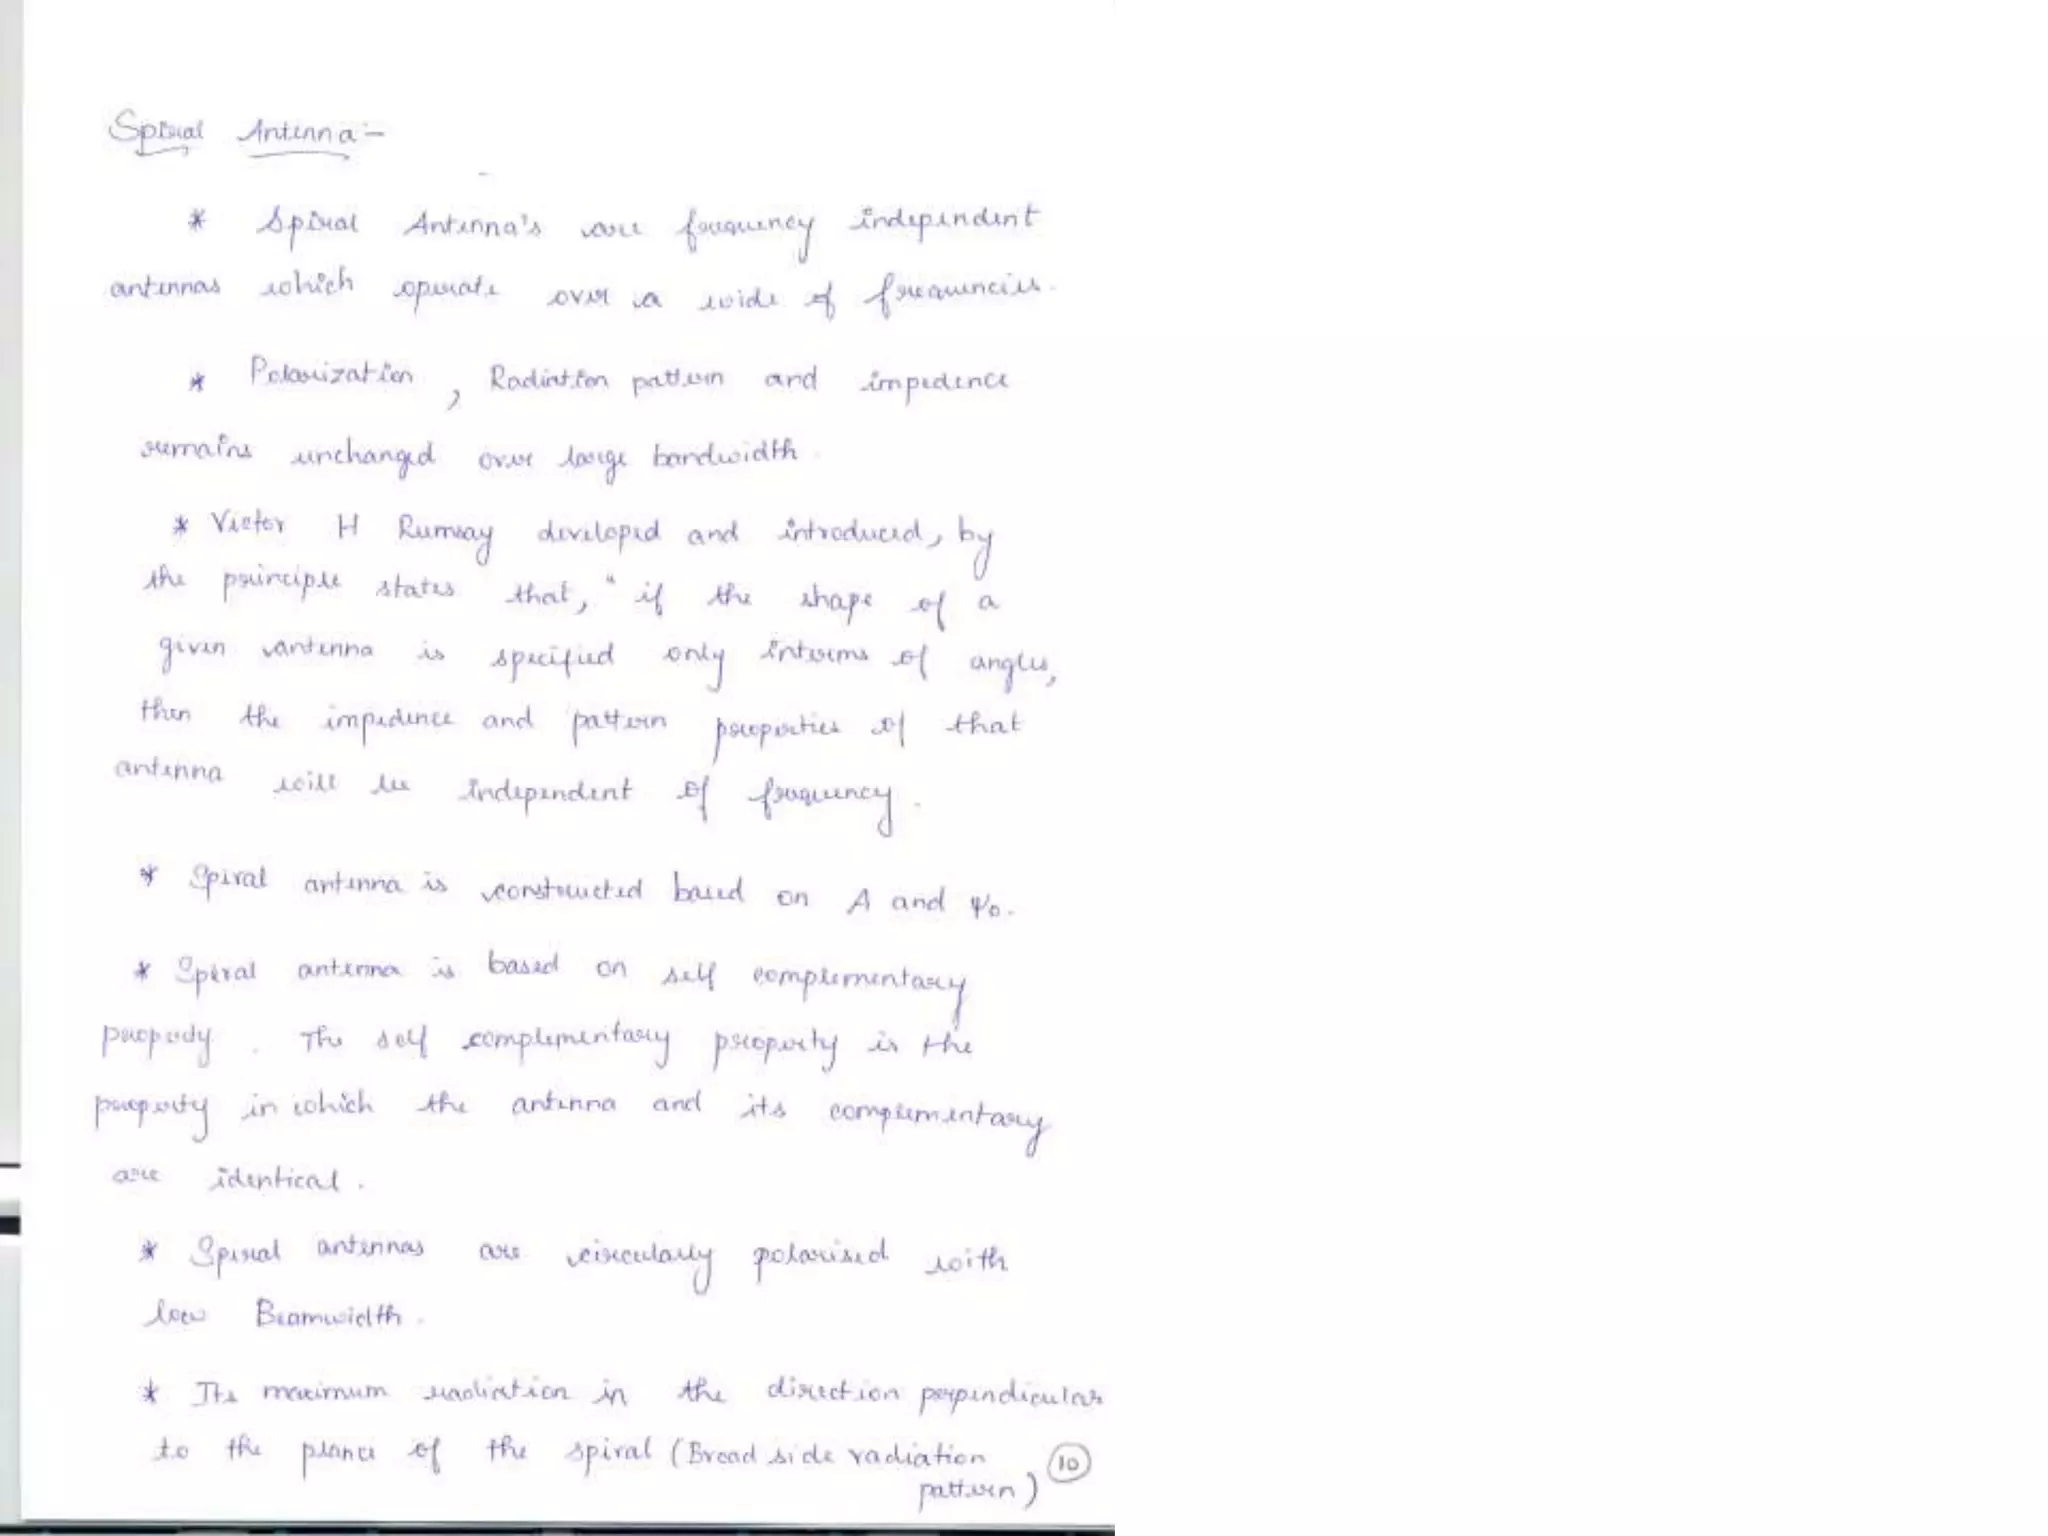 Spiral Antenna:-
* Spiral Antenna's are frequency independent
antennas which operate over a wide of frequencies.
* Polarization, Radiation pattern and impedence
remains unchanged over large bandwidth.
* Victor H Rumsay developed and introduced, by
the principle states that, " if the shape of a
given antenna is specified only interms of angles,
then the impedence and pattern properties of that
antenna will be independent of frequency.
* Spiral antenna is constructed based on A and Ψo.
* Spiral antenna is based on self complementary
property. The self complementary property is the
property in which the antenna and its complementary
are identical.
* Spiral antennas are circularly polarised with
low Beamwidth.
* Its maximum radiation in the direction perpendicular
to the plane of the spiral (Broad side radiation
pattern)
10